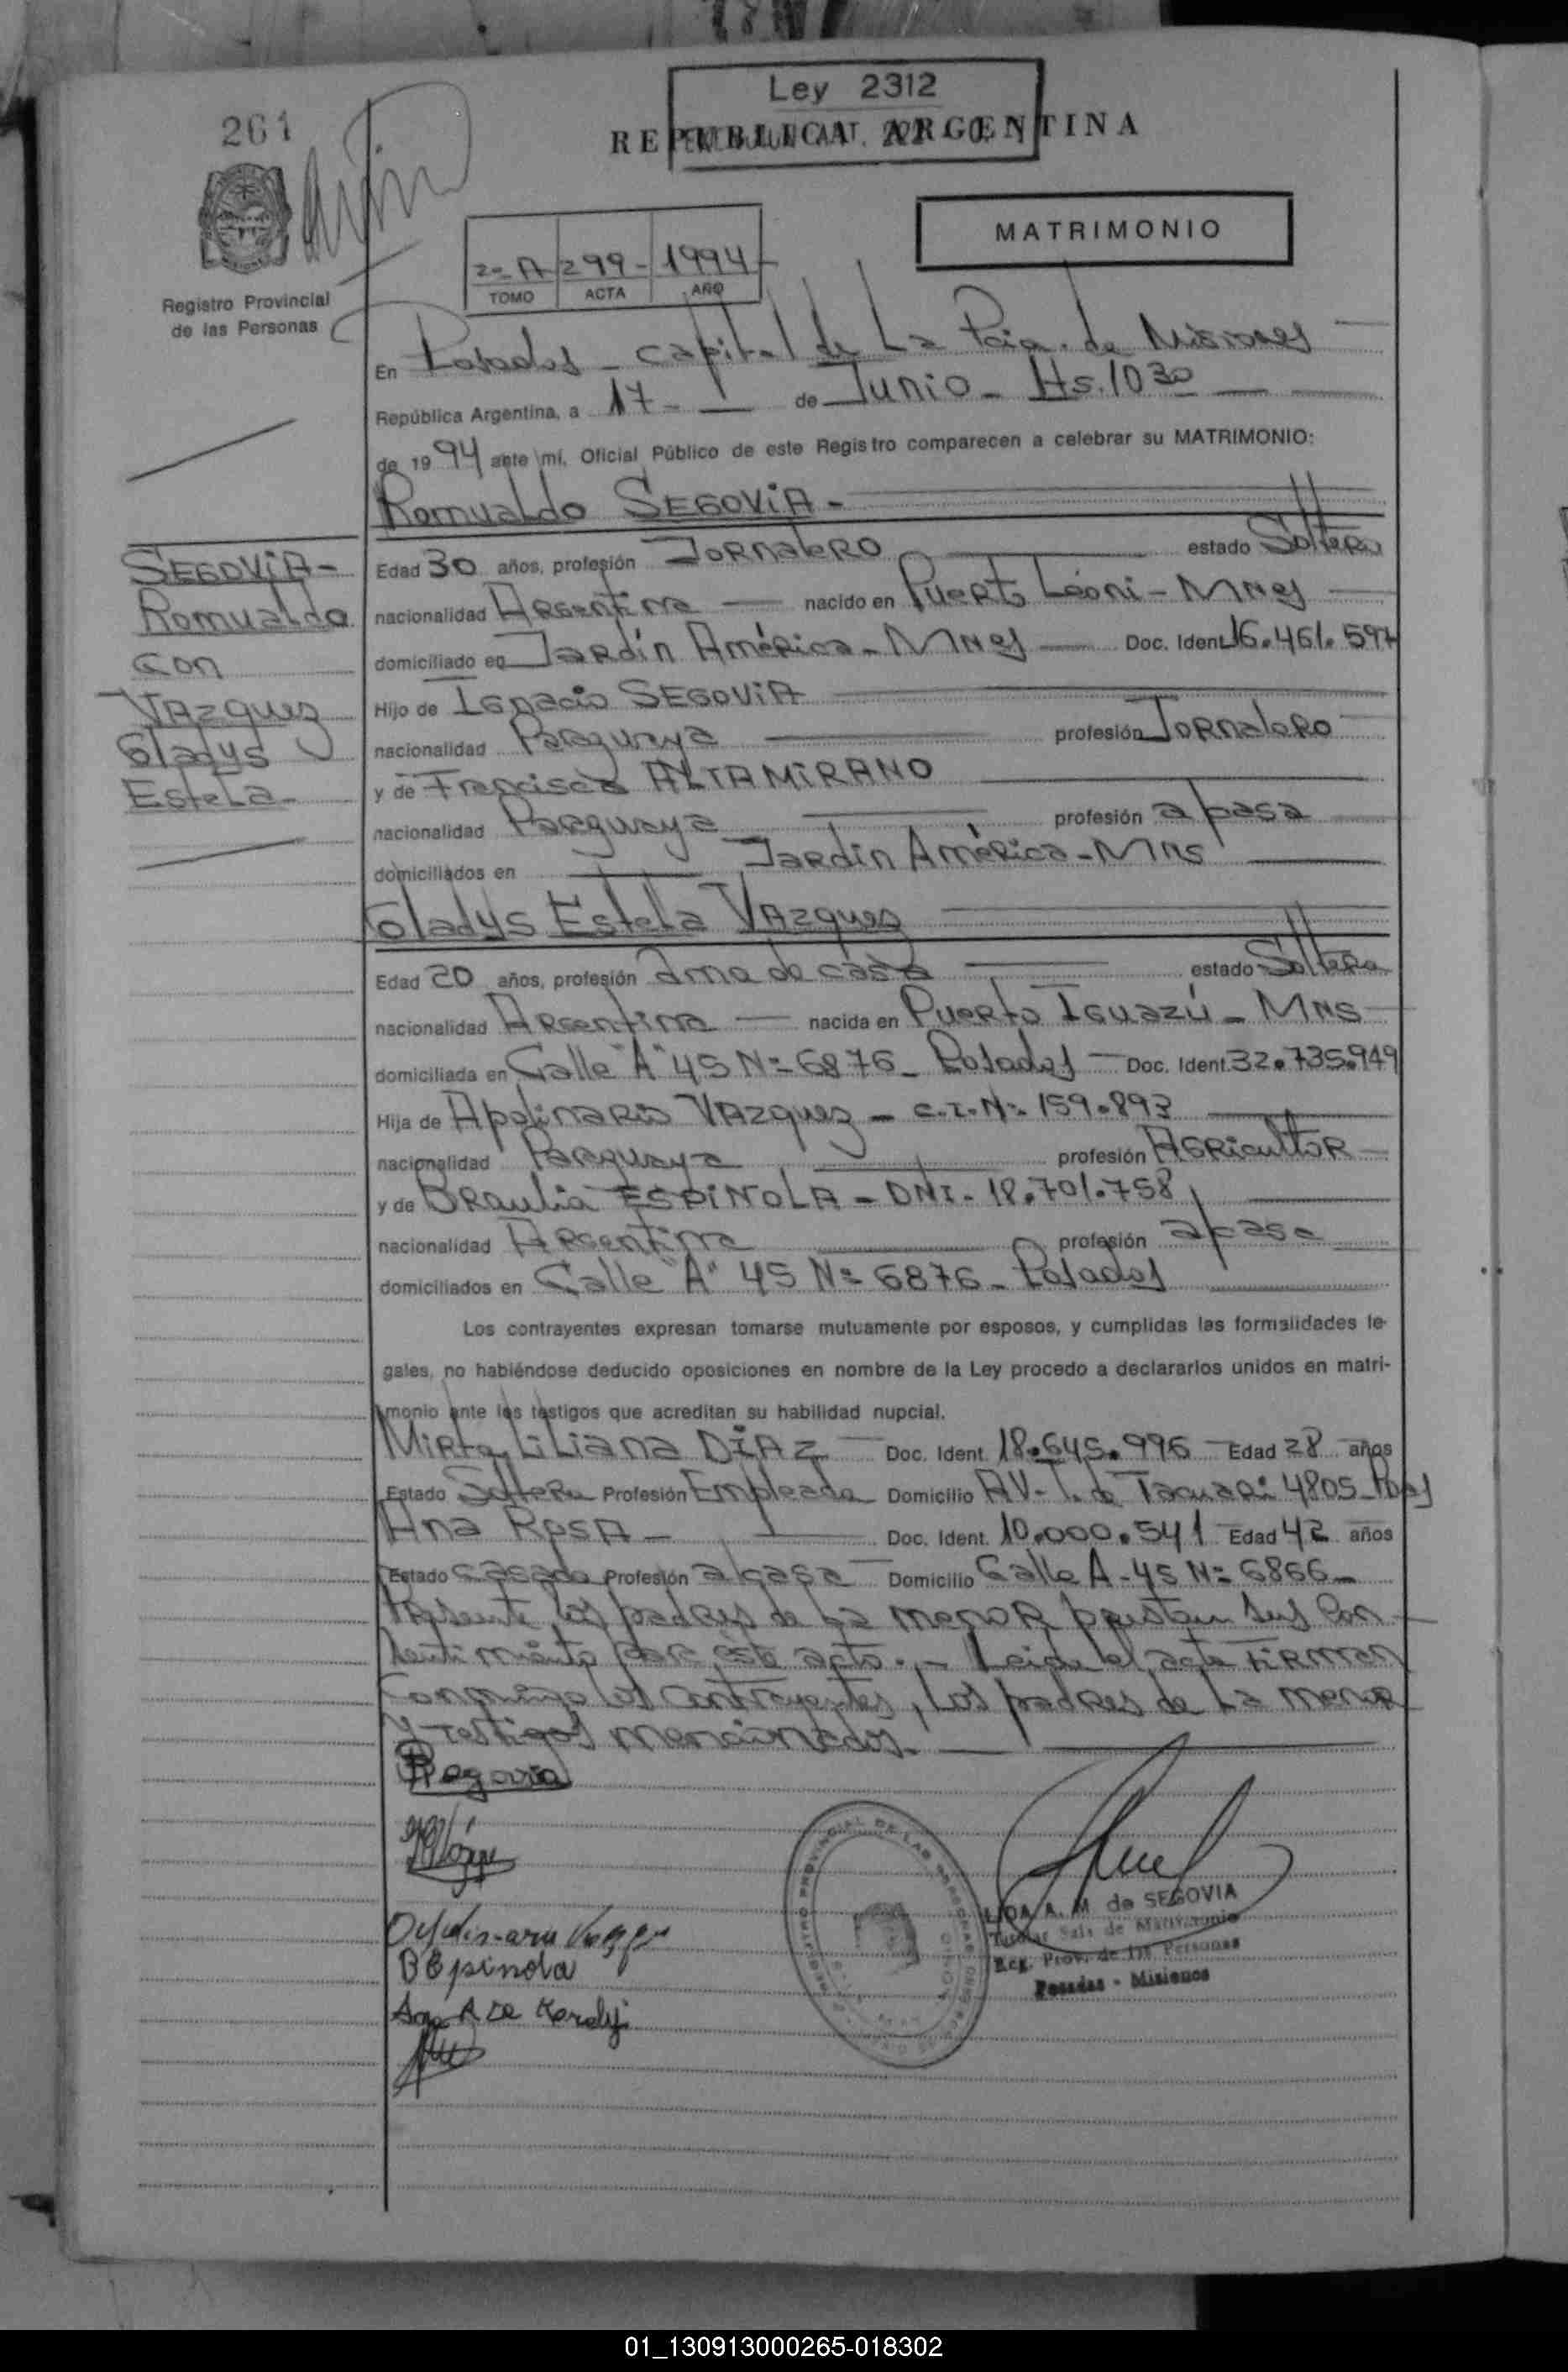 261
Ley 2312
REPUBLICA ARGENTINA
MATRIMONIO
2º A 299- 1994-
TOMO ACTA AÑO
Registro Provincial
de las Personas
En Posadas - Capital de La Pcia. de Misiones
República Argentina, a 17 - de Junio - Hs. 10 30
de 19 94 ante mí, Oficial Público de este Registro comparecen a celebrar su MATRIMONIO:
Romualdo SEGOVIA -
SEGOVIA -
Romualdo
con
VAZquez
Gladys
Estela
Edad 30 años, profesión JORNALERO estado Soltero
nacionalidad Argentina nacido en Puerto Léoni - Mnes
domiciliado en Jardín América - Mnes Doc. Ident. 16.461.597
Hijo de Ignacio SEGOVIA
nacionalidad Paraguaya profesión Jornalero
y de Francisca ALTAMIRANO
nacionalidad Paraguaya profesión a/casa
domiciliados en Jardín América - Mns
Gladys Estela VAZquez
Edad 20 años, profesión ama de casa estado Soltera
nacionalidad Argentina nacida en Puerto Iguazú - Mns
domiciliada en Calle "A" 45 Nº 6876 - Posadas Doc. Ident. 32.735.949
Hija de Apolinario VAZquez - C.I. Nº 159.893
nacionalidad Paraguaya profesión Agricultor
y de Braulia ESPINOLA - DNI - 18.701.758
nacionalidad Argentina profesión a/casa
domiciliados en Calle "A" 45 Nº 6876 - Posadas
Los contrayentes expresan tomarse mutuamente por esposos, y cumplidas las formalidades le-
gales, no habiéndose deducido oposiciones en nombre de la Ley procedo a declararlos unidos en matri-
monio ante los testigos que acreditan su habilidad nupcial.
Mirta Liliana DIAZ Doc. Ident. 18.645.996 Edad 28 años
Estado Soltera Profesión Empleada Domicilio AV. T. de Tacuari 4805 Pdas
Ana Rosa - Doc. Ident. 10.000.541 Edad 42 años
Estado casada Profesión a/casa Domicilio Calle A-45 Nº 6866 -
Presente los padres de La menor prestan sus con-
sentimiento para éste acto. - Leida el acta FIRMAN
conmigo los contrayentes, Los padres de La menor
y testigos mencionados. -
RSegovia
B Espinola
REGISTRO PROVINCIAL DE LAS PERSONAS
LIDA A. M. de SEGOVIA
Titular Sala de Matrimonio
Reg. Prov. de las Personas
Posadas - Misiones
01_130913000265-018302